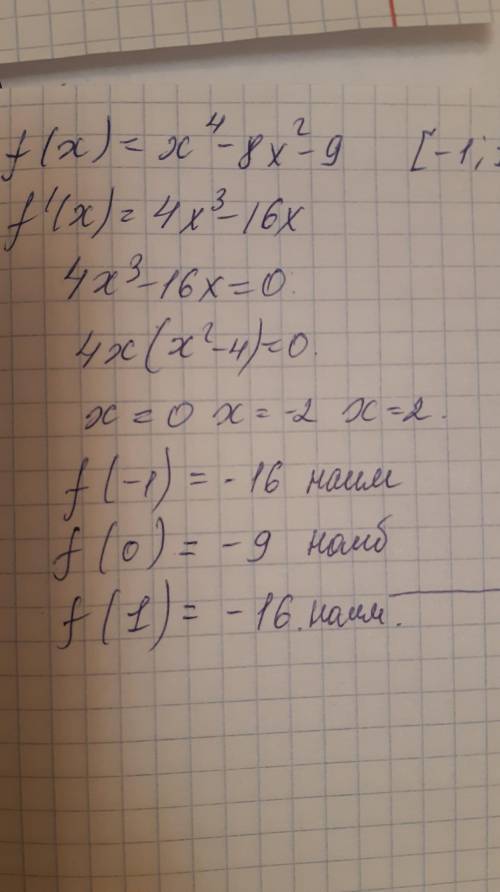 f(x) = x⁴ - 8x² - 9 [-1;
f'(x) = 4x³ - 16x
4x³ - 16x = 0.
4x(x² - 4) = 0.
x = 0 x = -2 x = 2.
f(-1) = -16 наим
f(0) = -9 наиб
f(1) = -16. наим.